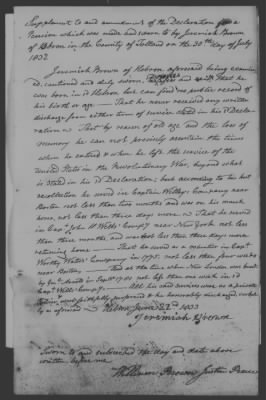 Supplement to and amendment of the Declaration for a
Pension which was made and sworn to by Jeremiah Brown
of Hebron in the County of Tolland on the 30th day of July
1832
Jeremiah Brown of Hebron aforesaid being examin
ed, cautioned and duly sworn, deposes and saith That he
was born in sd Hebron but can find no public record of
his birth or age — That he never received any written
discharge from either term of service stated in his sd Decla
ration — That by reason of old age and the loss of
memory he can not precisely ascertain the times
when he entered & when he left the service of the
United States in the Revolutionary War, beyond what
is stated in his sd Declaration; but according to his best
recollection he served in Captain Willys' Company near
Boston not less than two months and was on his march
home, not less than three days more — That he served
in Capt John H. Wells' Compy near New York not less
than three months, and was not less than three days more
returning home — That he served as a volunteer in Capt
Worthy Waters' Company in 1775. not less than four weeks
near Boston — And at the time when New London was burnt
by Genl Arnold in Septr 1781 not less than one week in sd
Capt Wells' Company. All his said services were as a private
faithfully performed & he honorably discharged
as aforesaid — Hebron June 22d 1833
Jeremiah Brown
Sworn to and subscribed the day and date above
written before me
William Brown Justice Peace